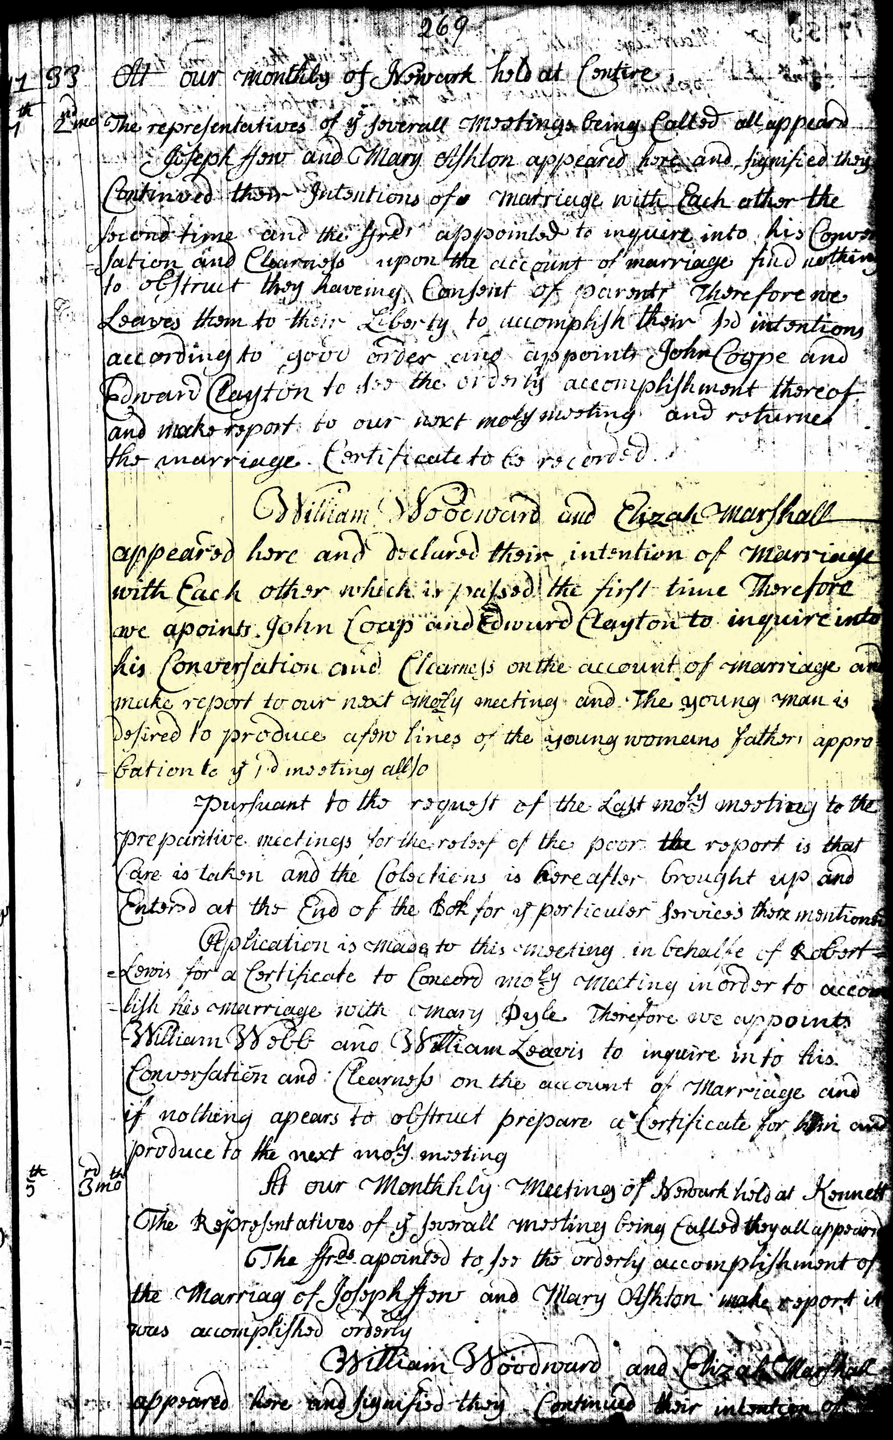 269
33 At our monthly of Newark held at Centire
7th 2nd mo The representatives of ye severall Meetings being Called all appeard
Joseph ffew and Mary Ashton appeared here and signified they
Continued their Intentions of marriage with Each other the
second time and the ffrds appointed to inquire into his Conver
sation and Clearness upon the account of marriage find nothing
to obstruct they haveing Consent of parents Therefore we
Leaves them to their Liberty to accomplish their sd intentions
according to good order and appoints John Cope and
Edward Clayton to see the orderly accomplishment thereof
and make report to our next moly meeting and returne
the marriage Certificate to be recorded
William Woodward and Elizah Marshall
appeared here and declared their intention of Marriage
with Each other which is passed the first time Therefore
we apoints John Coap and Edward Clayton to inquire into
his Conversation and Clearness on the account of marriage and
make report to our next moly meeting and the young man is
desired to produce a few lines of the young womans father appro
bation to ye sd meeting allso
Pursuant to the request of the Last moly meeting to the
preparitive meetings for the releef of the poor the report is that
Care is taken and the Colections is hereafter brought up and
Entered at the End of the Bok for ye perticuler services there mentioned
Application is made to this meeting in behalfe of Robert
Lewis for a Certificate to Concord moly Meeting in order to accom
lish his Marriage with Mary Dyle Therefore we appoints
William Webb and William Leavis to inquire into his
Conversation and Clearness on the account of Marriage and
if nothing apears to obstruct prepare a Certificate for him and
produce to the next moly meeting
5th 3rd moth At our Monthly Meeting of Newark held at Kennett
The Representatives of ye severall meeting being Called they all appeard
The ffrds apointed to see the orderly accomplishment of
the Marriag of Joseph ffew and Mary Ashton make report it
was accomplished orderly
William Woodward and Elizah Marshall
appeared here and signified they Continued their intention of